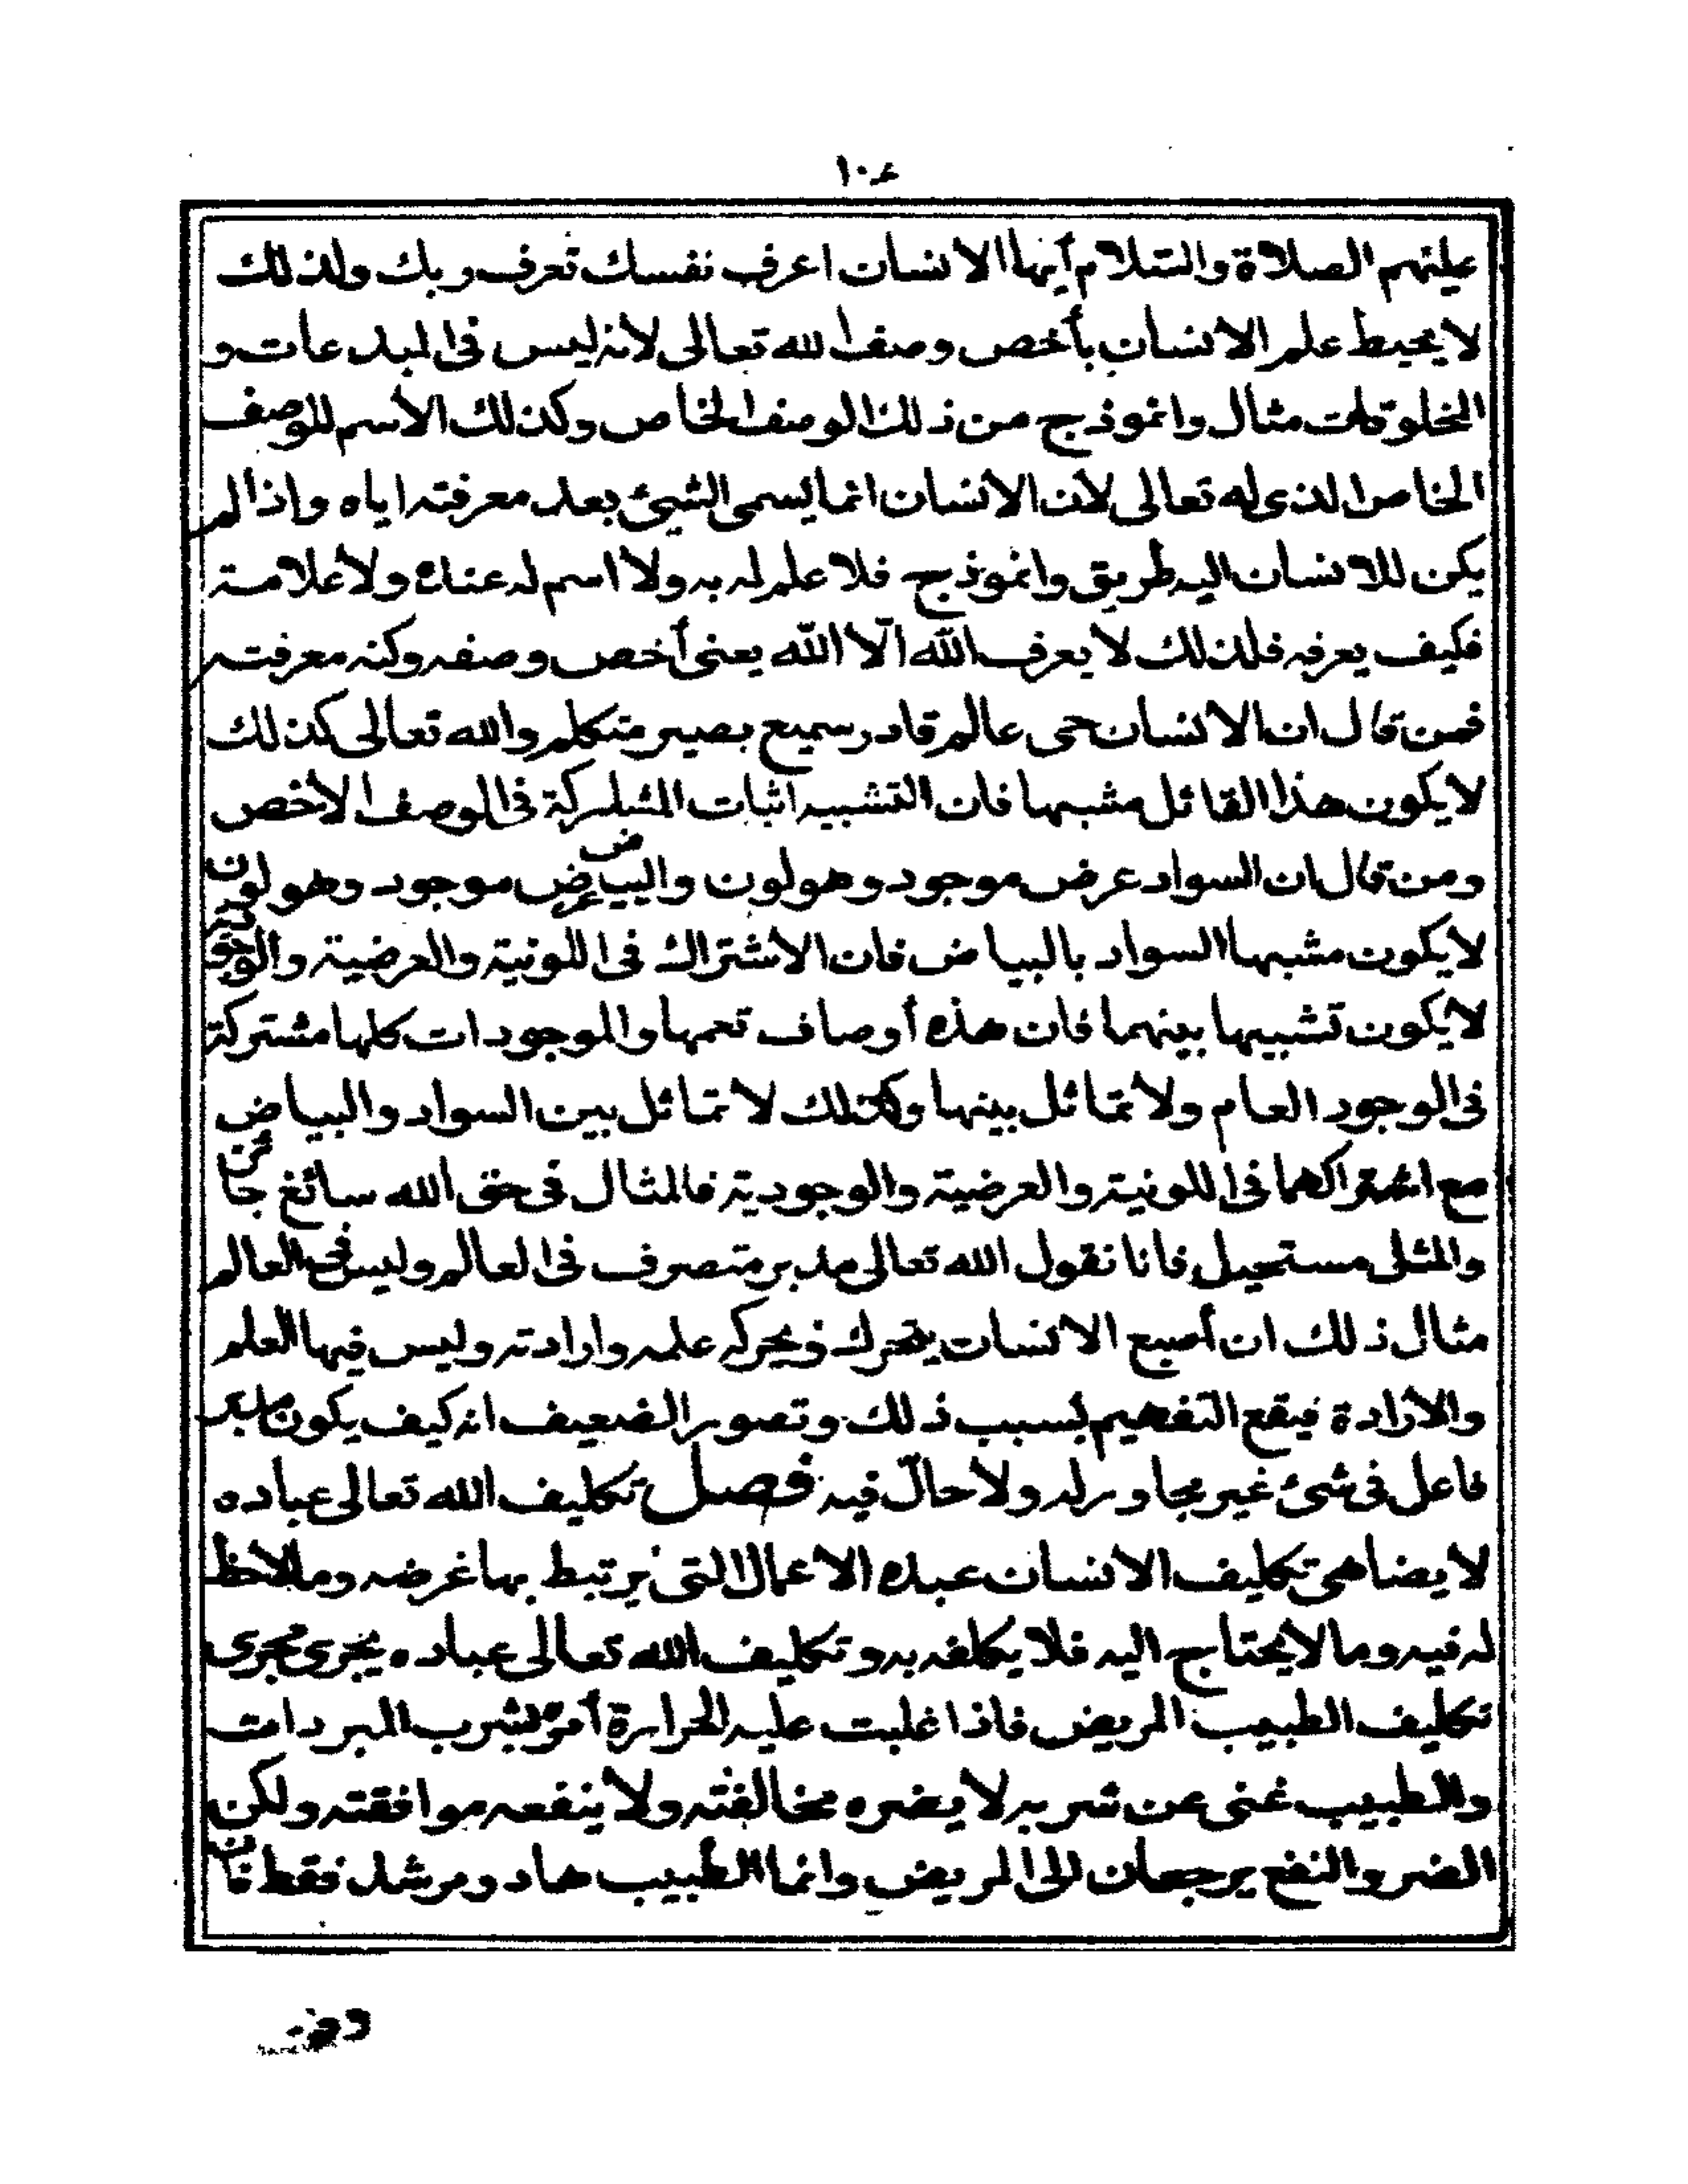 ١٠٤
عليهم الصلاة والسلام أيها الانسان اعرف نفسك تعرف ربك ولذلك
لا يحيط علم الانسان بأخص وصف الله تعالى لأنه ليس فى المبدعات و
المخلوقات مثال وانموذج من ذلك الوصف الخاص وكذلك الأسم للوصف
الخاص الذى له تعالى لأن الانسان انما يسمى الشيئ بعد معرفته اياه واذا لم
يكن للانسان اليه طريق وانموذج فلا علم له به ولا اسم له عنده ولا علامة
فكيف يعرفه فلذلك لا يعرف الله الّا الله يعنى أخص وصفه وكنه معرفته
فمن قال ان الانسان حى عالم قادر سميع بصير متكلم والله تعالى كذلك
لا يكون هذا القائل مشبها فان التشبيه اثبات المشاركة فى الوصف الأخص
ومن قال ان السواد عرض موجود وهو لون والبياض عرض موجود وهو لون
لا يكون مشبها السواد بالبياض فان الاشتراك فى اللونية والعرضية والوجودية
لا يكون تشبيها بينهما فان هذه أوصاف تعمها والموجودات كلها مشتركة
فى الوجود العام ولا تماثل بينها وكذلك لا تماثل بين السواد والبياض
مع اشتراكهما فى اللونية والعرضية والوجودية فالمثال فى حق الله سائغ جائز
والمثلى مستحيل فانا نقول الله تعالى مدبر متصرف فى العالم وليس فى العالم
مثال ذلك ان أصبع الانسان يتحرك ويحركه علمه وارادته وليس فيها العلم
والارادة فيقع التفهيم بسبب ذلك وتصور الضعيف انه كيف يكون مدبر
فاعل فى شئ غير مجاور له ولا حالّ فيه فصل تكليف الله تعالى عباده
لا يضاهى تكليف الانسان عبده الاعمال التى يرتبط بها غرضه وما لاحظ
له فيه وما لا يحتاج اليه فلا يكلفه به وتكليف الله تعالى عباده يجرى مجرى
تكليف الطبيب المريض فاذا غلبت عليه الحرارة أمره بشرب المبردات
والطبيب غنى عن شربه لا يضره مخالفته ولا ينفعه موافقته ولكن
الضر والنفع يرجعان الى المريض وانما الطبيب هاد ومرشد فقط فان